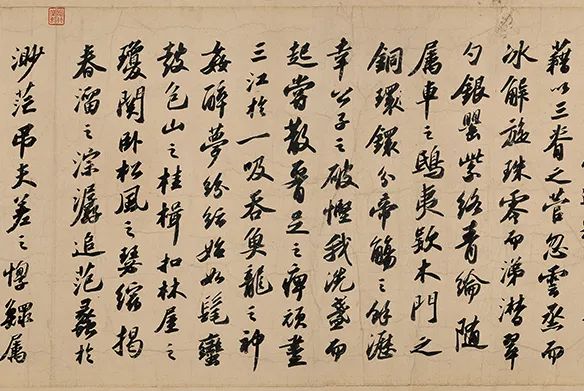 藉以三脊之菅忽雲烝而
冰解旋珠零而涕潸翠
勺銀罌紫絡青綸隨
属車之鴟夷欵木門之
銅環鐶分帝觴之餘瀝
幸公子之破慳我洗盞而
起嘗散腎足之痺頑盡
三江於一吸吞魚龍之神
姦醉夢紛紜始如髦蠻
鼓包山之桂楫扣林屋之
瓊関卧松風之瑟縮揭
春溜之淙潺追范蠡於
渺茫吊夫差之惸鰥属